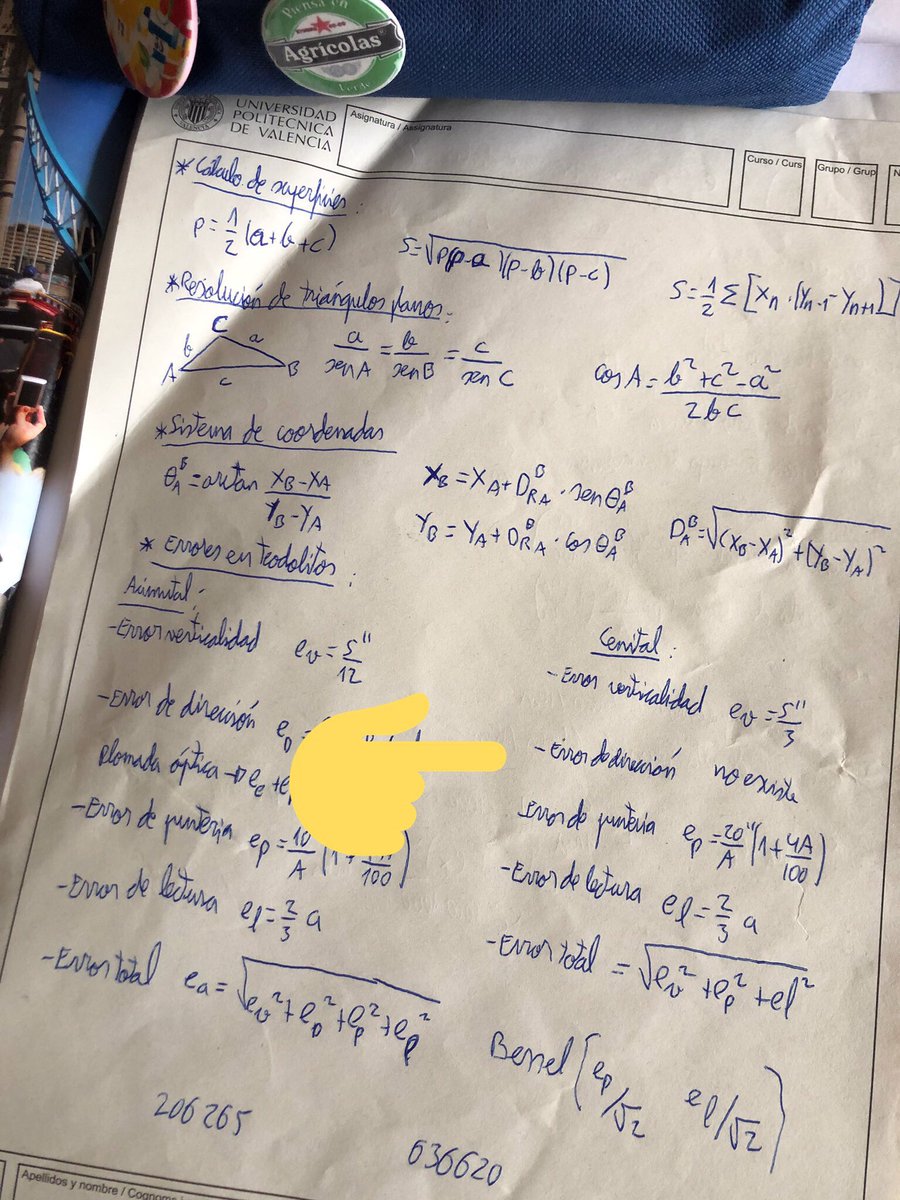 Piensa en
Agrícolas
Verde
UNIVERSIDAD
POLITECNICA
DE VALENCIA
Asignatura / Assignatura
Curso / Curs
Grupo / Grup
N
* Cálculo de superficies:
p = 1/2 (a+b+c)
S = √(p(p-a)(p-b)(p-c))
S = 1/2 Σ[Xn·(Yn-1 - Yn+1)]
* Resolución de triángulos planos:
C
b a
A B
c
a/sen A = b/sen B = c/sen C
cos A = (b²+c²-a²)/2bc
* Sistema de coordenadas
θ_A^B = arctan (X_B-X_A)/(Y_B-Y_A)
X_B = X_A + D_RA^B · sen θ_A^B
Y_B = Y_A + D_RA^B · cos θ_A^B
D_A^B = √((X_B-X_A)²+(Y_B-Y_A)²)
* Errores en Teodolitos:
Acimital:
- Error verticalidad e_v = s"/12
- Error de dirección e_D =
Plomada óptica → e_e + e
- Error de puntería e_p = 10/A (1+ /100)
- Error de lectura e_l = 2/3 a
- Error total e_a = √(e_v²+e_D²+e_p²+e_l²)
Cenital:
- Error verticalidad e_v = s"/3
- Error de dirección no existe
Error de puntería e_p = 20"/A (1+4A/100)
- Error de lectura e_l = 2/3 a
- Error total = √(e_v²+e_p²+el²)
Bessel [e_p/√2 el/√2]
206265
636620
Apellidos y nombre / Cognoms